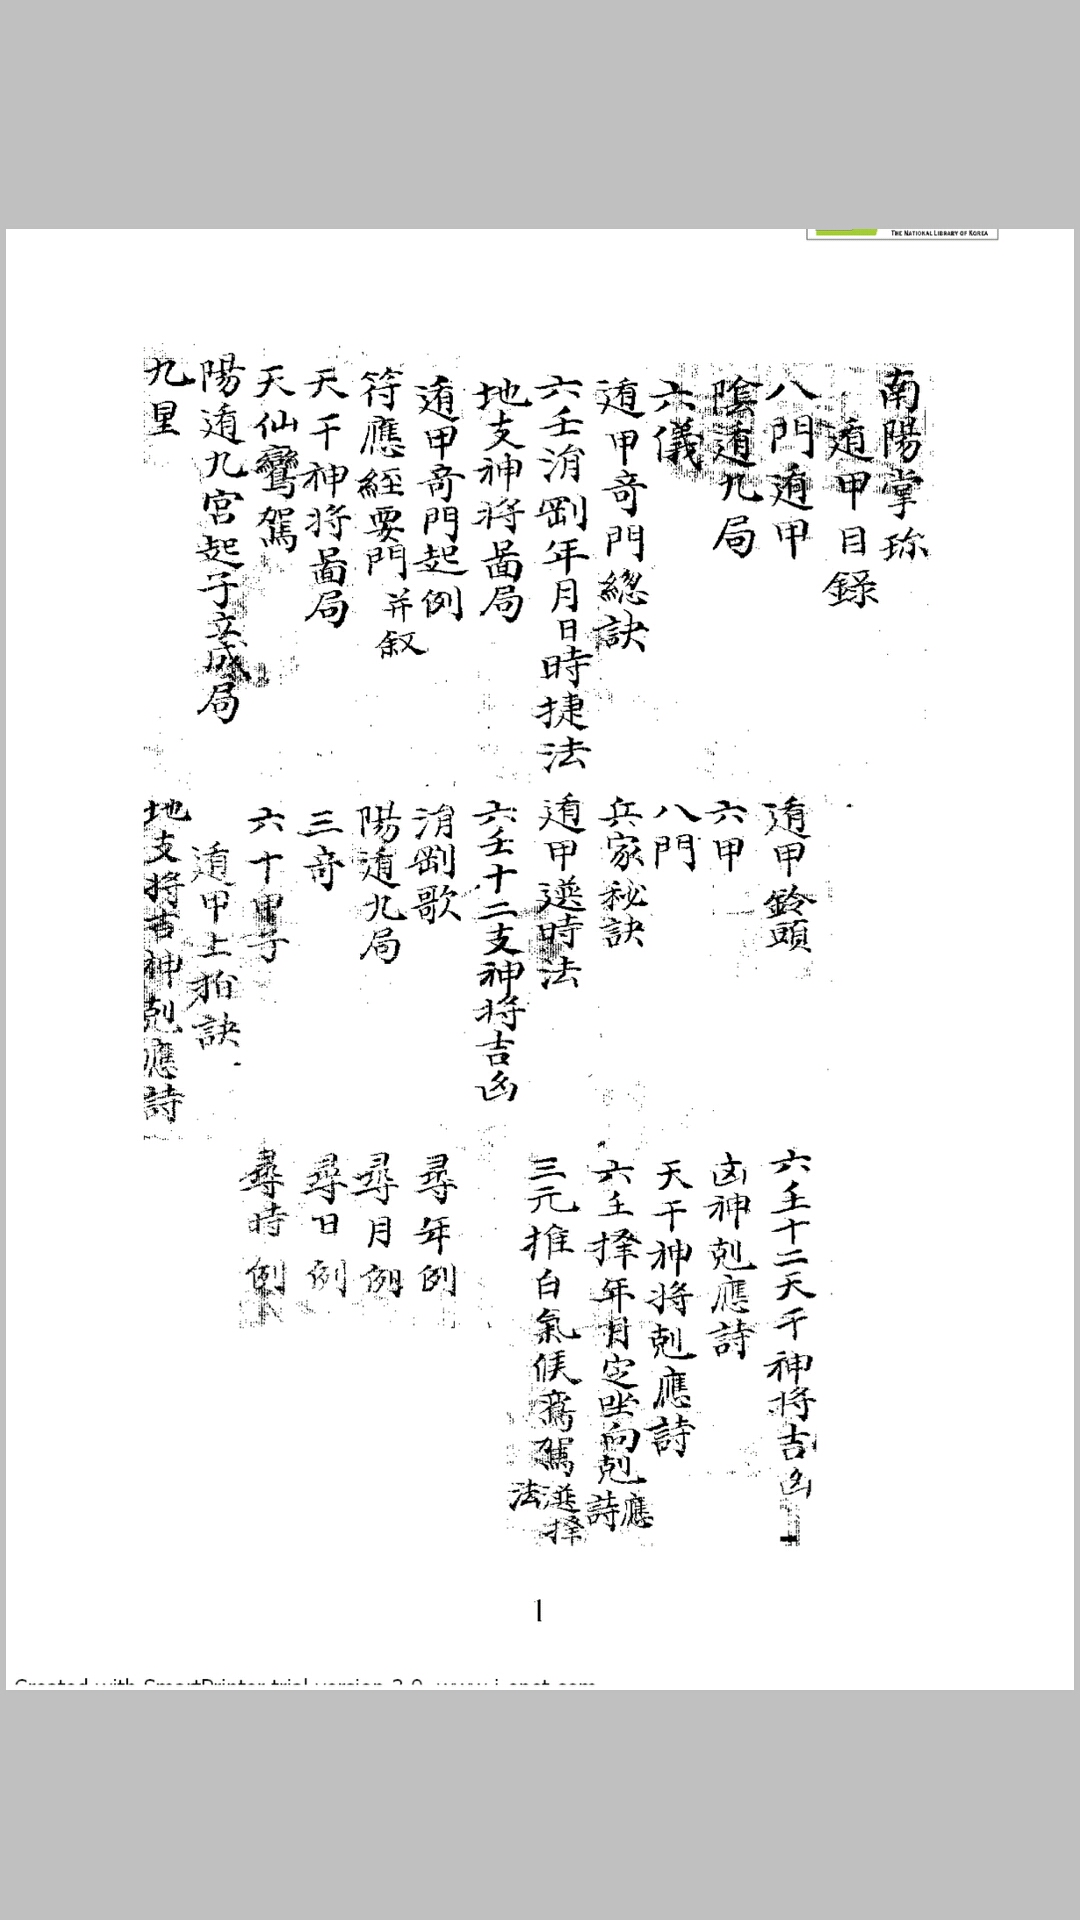 THE NATIONAL LIBRARY OF KOREA
南陽掌珎
遁甲目錄
八門遁甲
遁甲鈴頭
六壬十二天干神將吉凶
陰遁九局
六甲
凶神剋應詩
六儀
八門
天干神將剋應詩
遁甲奇門總訣
兵家秘訣
六壬擇年月定坐向剋應詩
六壬淯罡年月日時捷法
遁甲選時法
三元推白氣候鸞駕選擇法
地支神將啚局
六壬十二支神將吉凶
遁甲奇門起例
淯罡歌
尋年例
符應経要門并叙
陽遁九局
尋月例
天干神將啚局
三奇
尋日例
天仙鸞駕
六十甲子
尋時例
陽遁九宮起子立成局
遁甲上拍訣
九星
地支將吉神剋應詩
1
Created with SmartPrinter trial version